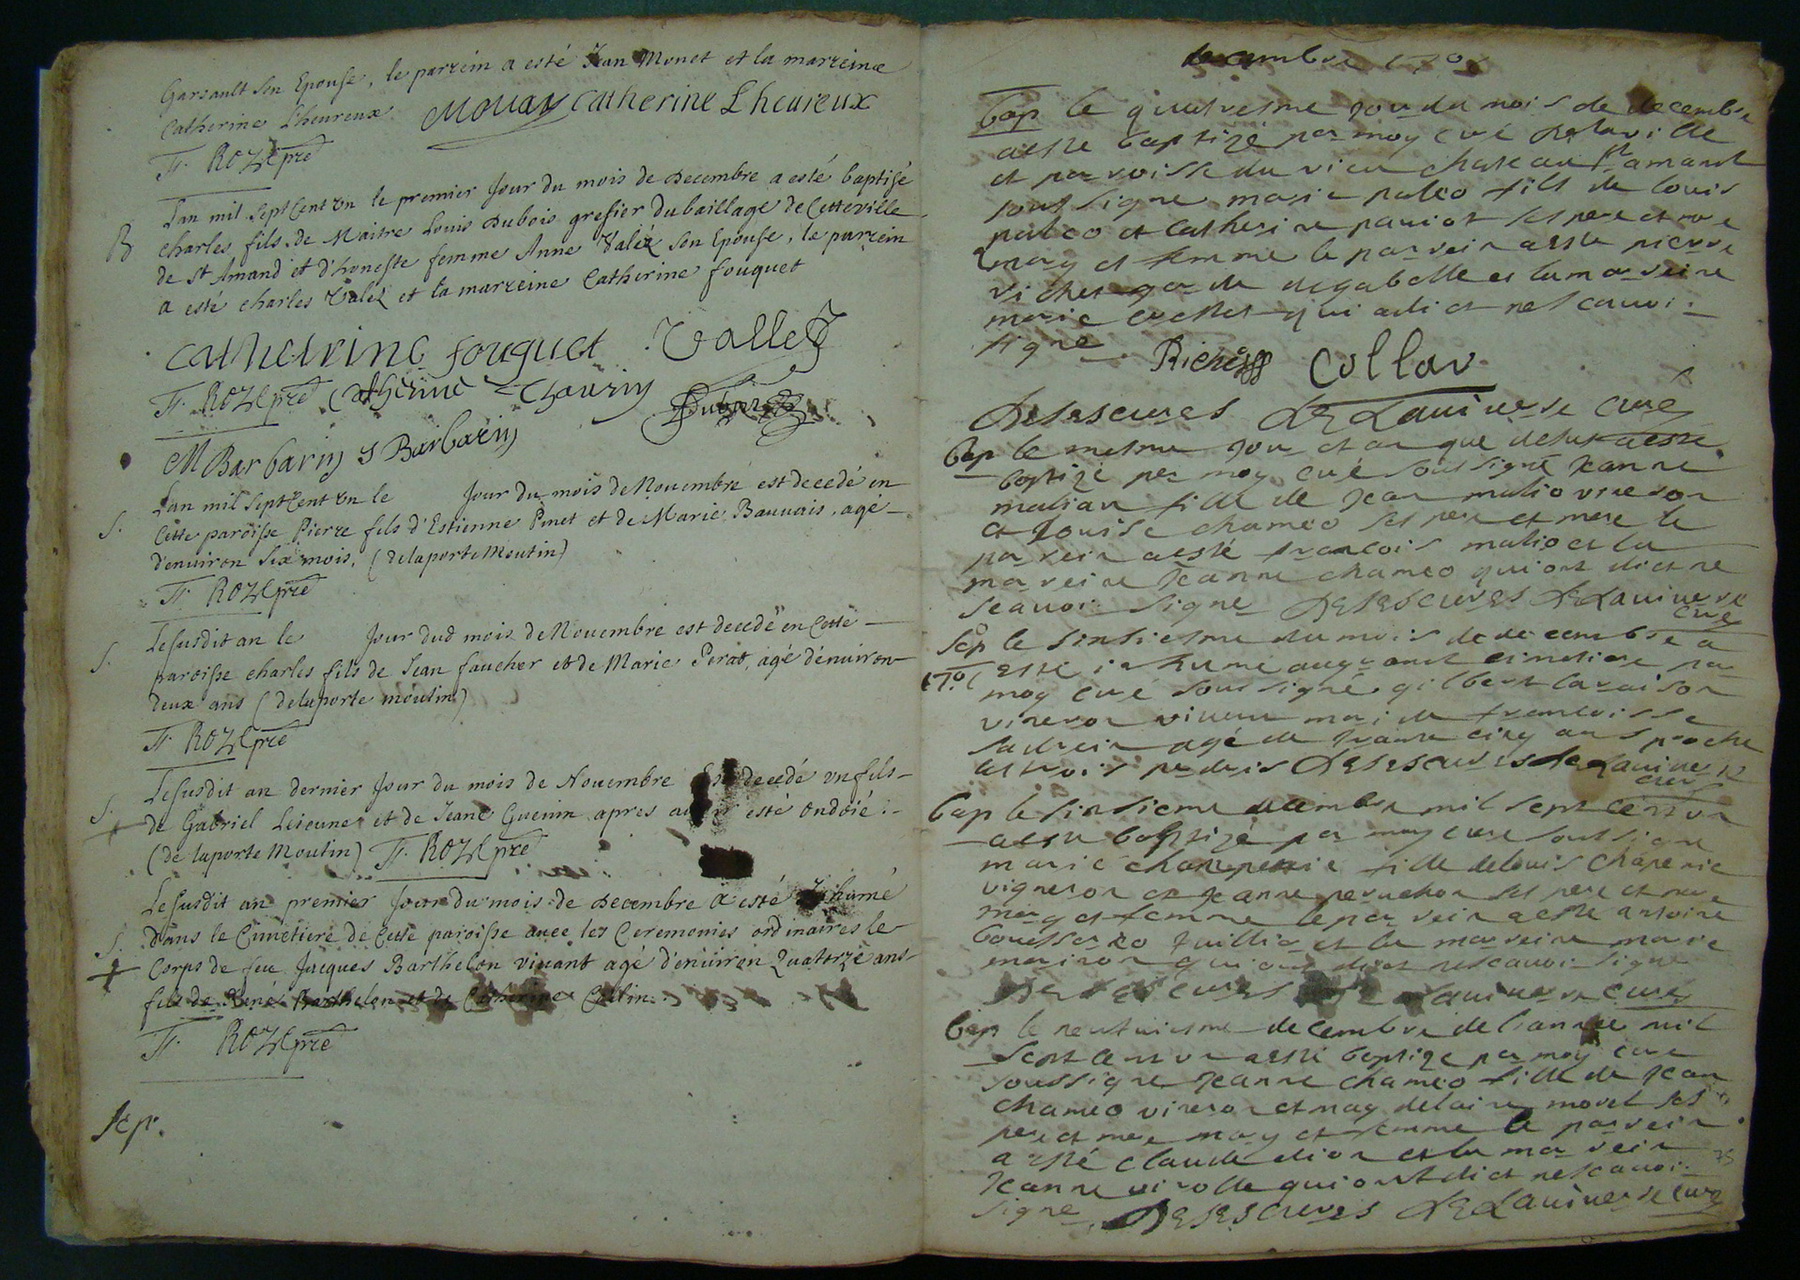 Garsault son Epouse, le parrein a esté Jean Monet et la marreine
Catherine Lheureux. Mouay Catherine Lheureux
F. ROZE pre
Lan mil sept Cent un le premier Jour du mois de decembre a esté baptisé
B charles fils de Maitre Louis Dubois grefier du baillage de Cette ville
de St Amand et d'honeste femme Anne Valéz son Epouse, le parrein
a esté charles Valéz et la marreine Catherine fouquet
catheirine fouquet Vallez
F. ROZE pre Catherine Thaurin Dubois
M Barbarin S Barbarin
Lan mil sept Cent un le Jour du mois de Novembre est decedé en
S. Cette paroisse Pierre fils d'Estienne Pinet et de Marie Bauvais, agé
d'environ six mois, (de laporte Moutin)
F. ROZE pre
Le susdit an le Jour dud mois de Novembre est decedé en Cette
S. paroisse charles fils de Jean faucher et de Marie Perat, agé d'environ
deux ans (de laporte moutin)
F. ROZE pre
Le susdit an dernier Jour du mois de Novembre est decedé un fils
S. de Gabriel Lejeune et de Jeane Guenin apres avoir esté ondoié :
(de laporte Moutin) F. ROZE pre
Le susdit an premier Jour du mois de decembre a esté Inhumé
S. dans le Cimetiere de Cette paroisse avec les Ceremonies ordinaires le
Corps de feu Jacques Barthelon vivant agé d'environ Quatorze ans
fils de René Barthelon et de Catherine
F. ROZE pre
Sep.
decembre 1701
bap le quatresme jou du mois de decembre
aeste baptizé par moy curé de la ville
et parroisse du vieu chateau st amand
sous signe marie paleo fille de louis
paleo et catherine pauiot ses pere et mere
mary et femme le parrein a este pierre
richer garde de gabelle et la mareine
marie qui a dict ne scauoi
signe Richer Collav
Desescures De Lauinerse curé
bap le mesme jou et an que desus a esté
baptizé par moy curé soussigné Jeanne
malian fille de Jean malio vireron
et Louise chameo ses pere et mere le
parein a esté francois malio et la
mareine Jeanne chameo qui ont dict ne
scauoi signe Desescures De Lauinerse
curé
Sep le sinsiesme du mois de decembre a
1701 esté inhumé au grand cimetiere par
moy curé soussigné gilbert
vireron viuant mari de francoisse
agé de trante cinq ans proche
Desescures de Lauinerse
curé
bap le sinsieme decembre mil sept cent un
a este baptizé par moy cure soussigne
marie charpentie fille de louis
vigneron et Jeanne peruchon ses pere et mere
mary et femme le parrein a este antoine
et la mareine marie
qui ont dict ne scauoi signe
Desescures De Lauinerse curé
bap le neufuiesme decembre de l'annee mil
sept cent un a esté baptize par moy cure
soussigne Jeanne chameo fille de Jean
chameo vireron et morel ses
pere et mere mary et femme le parrein
a esté claude dion et la marein
Jeanne virolle qui ont dict ne scauoi
signe Desescures De Lauinerse curé